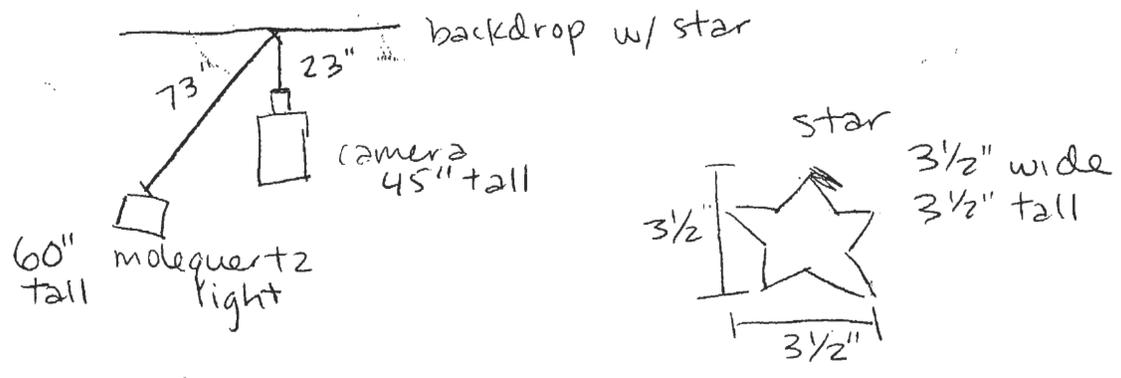 backdrop w/ star
73"
23"
camera
45" tall
60"
tall
molequartz
light
star
3 1/2" wide
3 1/2" tall
3 1/2"
3 1/2"